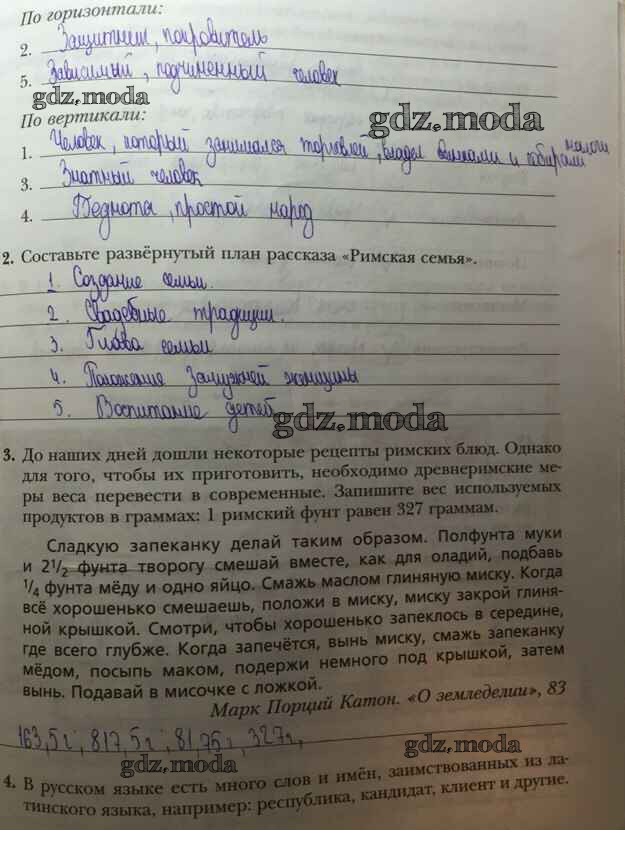 По горизонтали:
2. Защитник, покровитель
5. Зависимый, подчиненный человек
gdz.moda
gdz.moda
По вертикали:
1. Человек, который занимался торговлей, владел банками и собирали налоги
3. Знатный человек
4. Беднота, простой народ
2. Составьте развёрнутый план рассказа «Римская семья».
1. Создание семьи.
2. Свадебные традиции.
3. Глава семьи
4. Положение замужней женщины
5. Воспитание детей
gdz.moda
3. До наших дней дошли некоторые рецепты римских блюд. Однако
для того, чтобы их приготовить, необходимо древнеримские ме-
ры веса перевести в современные. Запишите вес используемых
продуктов в граммах: 1 римский фунт равен 327 граммам.
Сладкую запеканку делай таким образом. Полфунта муки
и 2 1/2 фунта творогу смешай вместе, как для оладий, подбавь
1/4 фунта мёду и одно яйцо. Смажь маслом глиняную миску. Когда
всё хорошенько смешаешь, положи в миску, миску закрой глиня-
ной крышкой. Смотри, чтобы хорошенько запеклось в середине,
где всего глубже. Когда запечётся, вынь миску, смажь запеканку
мёдом, посыпь маком, подержи немного под крышкой, затем
вынь. Подавай в мисочке с ложкой.
Марк Порций Катон. «О земледелии», 83
163,5 г, 817,5 г, 81,75 г, 327 г,
gdz.moda
gdz.moda
4. В русском языке есть много слов и имён, заимствованных из ла-
тинского языка, например: республика, кандидат, клиент и другие.